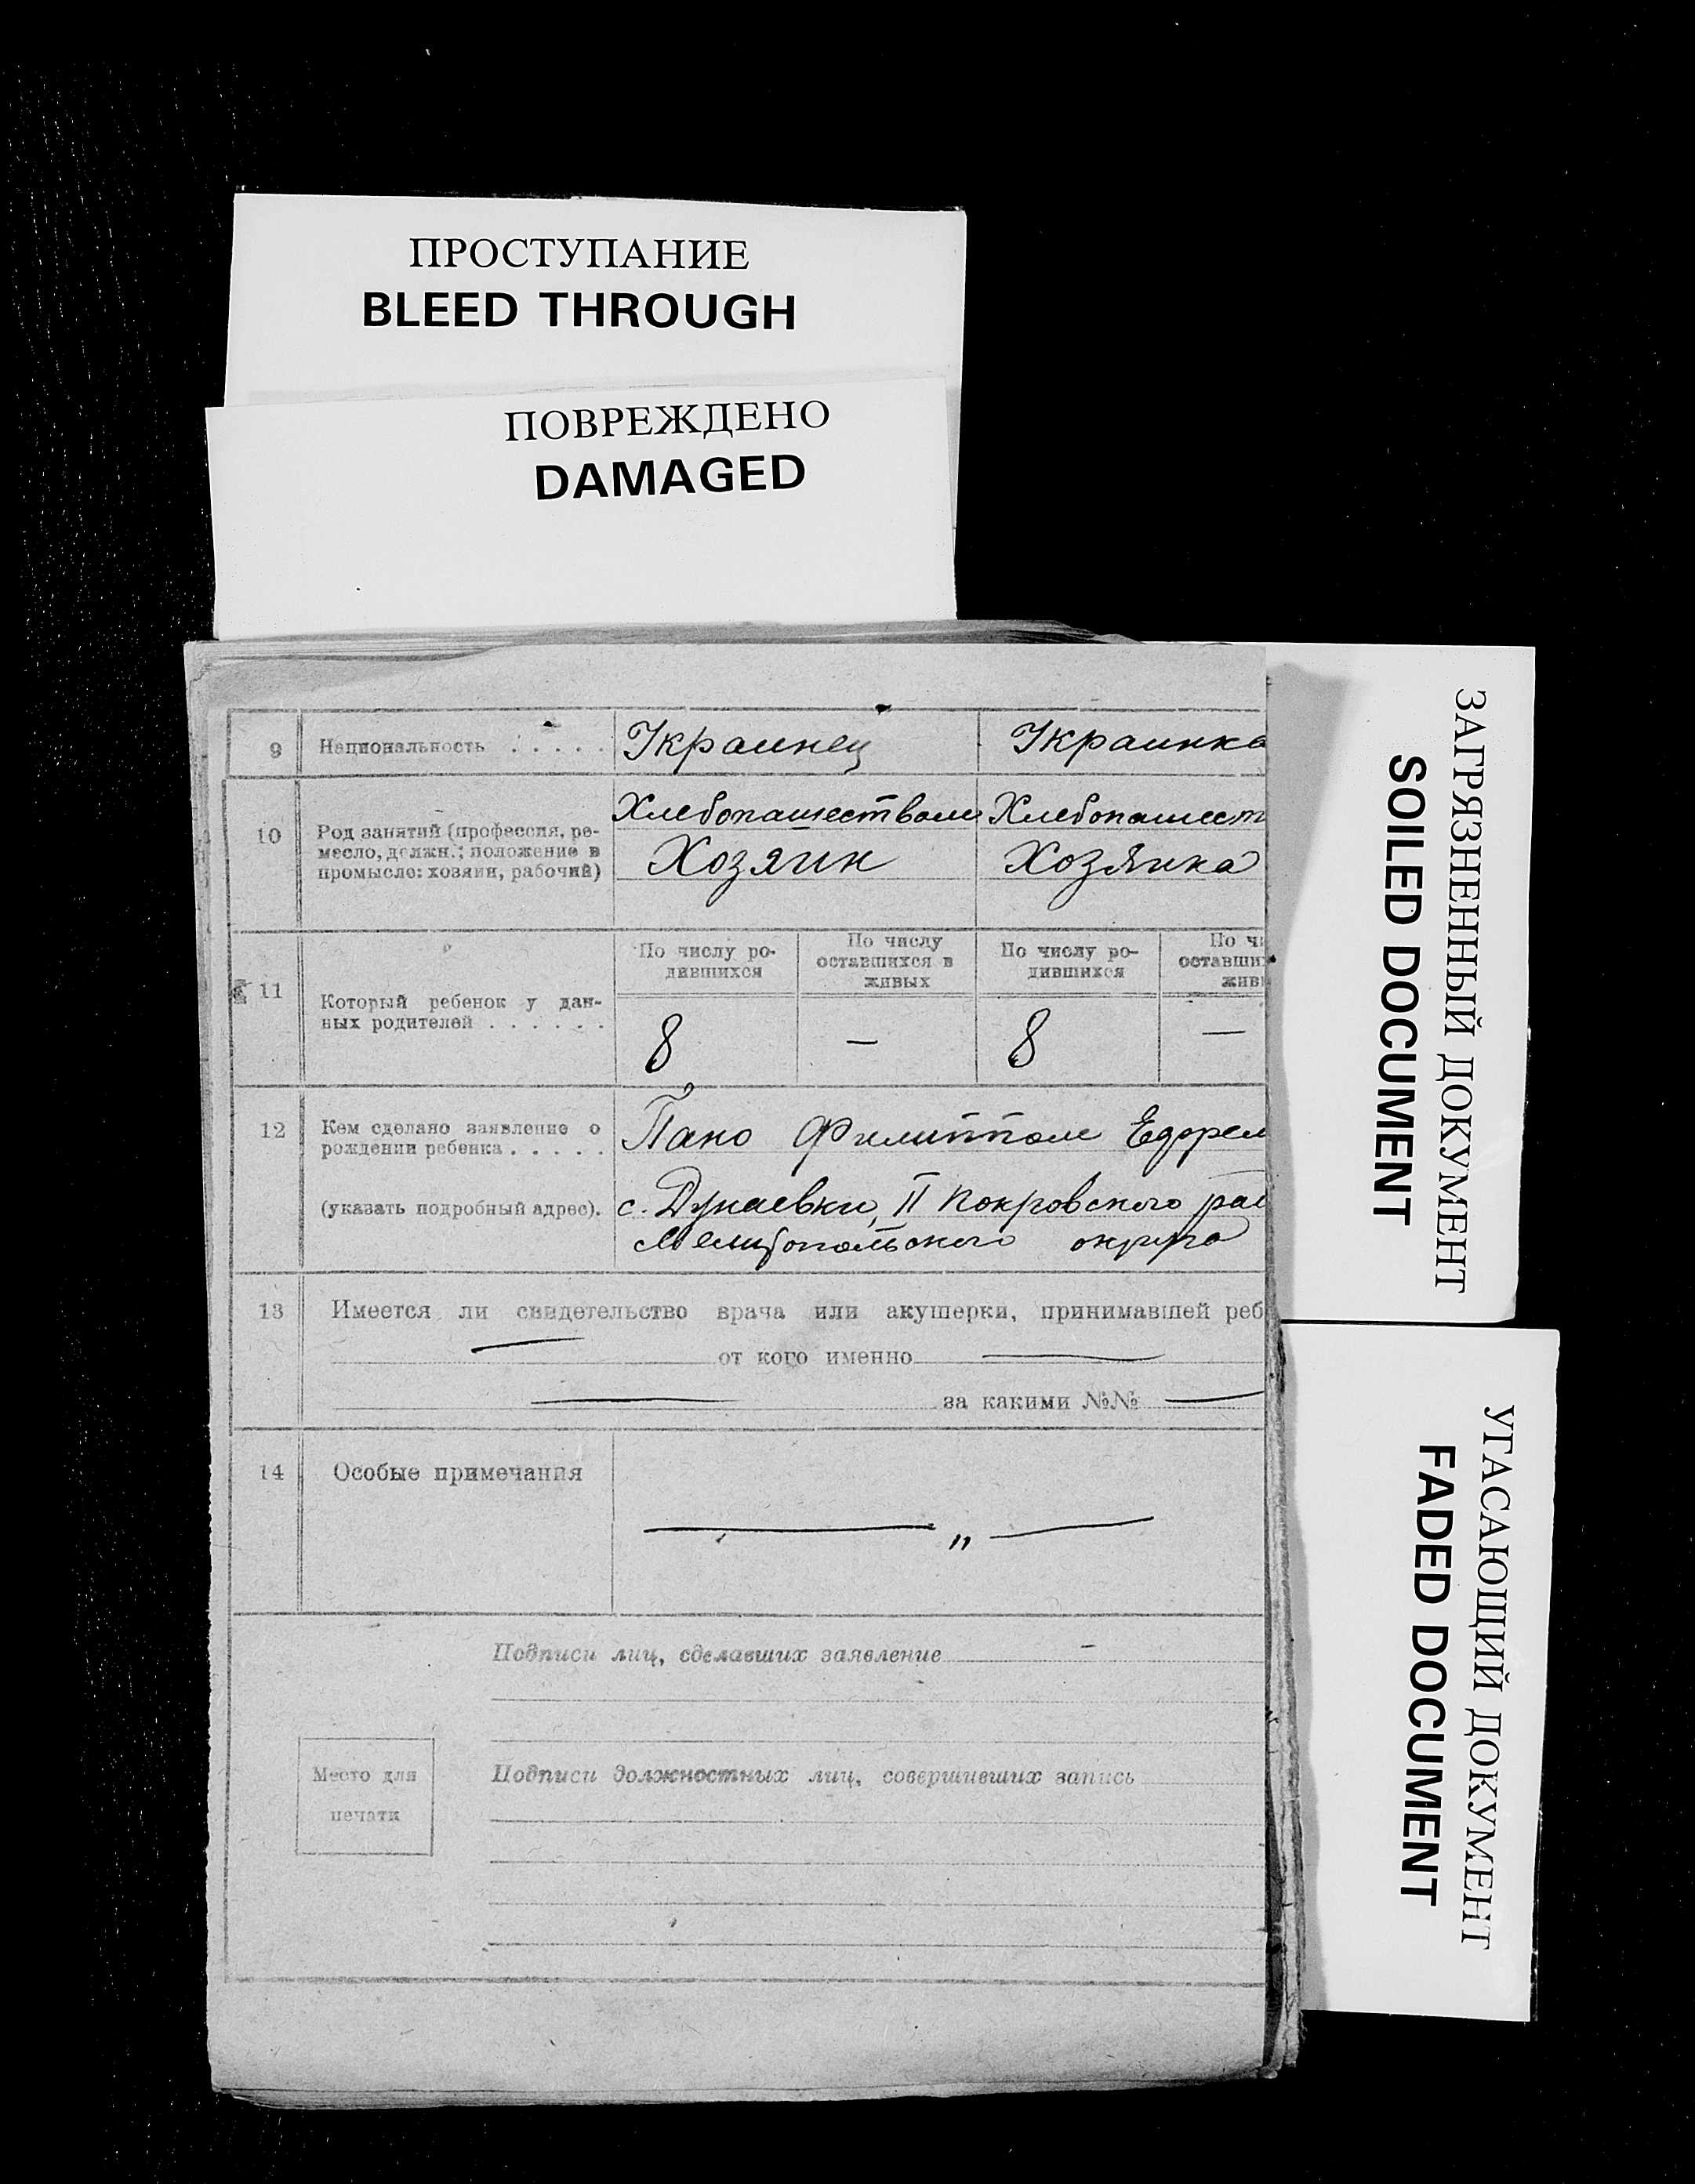 ПРОСТУПАНИЕ
BLEED THROUGH
ПОВРЕЖДЕНО
DAMAGED
9 Национальность . . . . . Украинец Украинка
10 Род занятий (профессия, ре-
месло, должн.; положение в
промысле: хозяин, рабочий)
Хлебопашеством Хлебопашест
Хозяин Хозяйка
11 Который ребенок у дан-
ных родителей . . . . . .
По числу ро-
дившихся
По числу
оставшихся в
живых
По числу ро-
дившихся
По чи
оставших
жив
8 — 8 —
12 Кем сделано заявление о
рождении ребенка . . . . .
(указать подробный адрес).
Пано Филиппом Ефрем
с. Дунаевки, II Покровского рай
Мелитопольского округа
13 Имеется ли свидетельство врача или акушерки, принимавшей реб
— от кого именно —
— за какими №№ —
14 Особые примечания
— „ —
Подписи лиц, сделавших заявление —
Подписи должностных лиц, совершивших запись
Место для
печати
ЗАГРЯЗНЕННЫЙ ДОКУМЕНТ
SOILED DOCUMENT
УГАСАЮЩИЙ ДОКУМЕНТ
FADED DOCUMENT